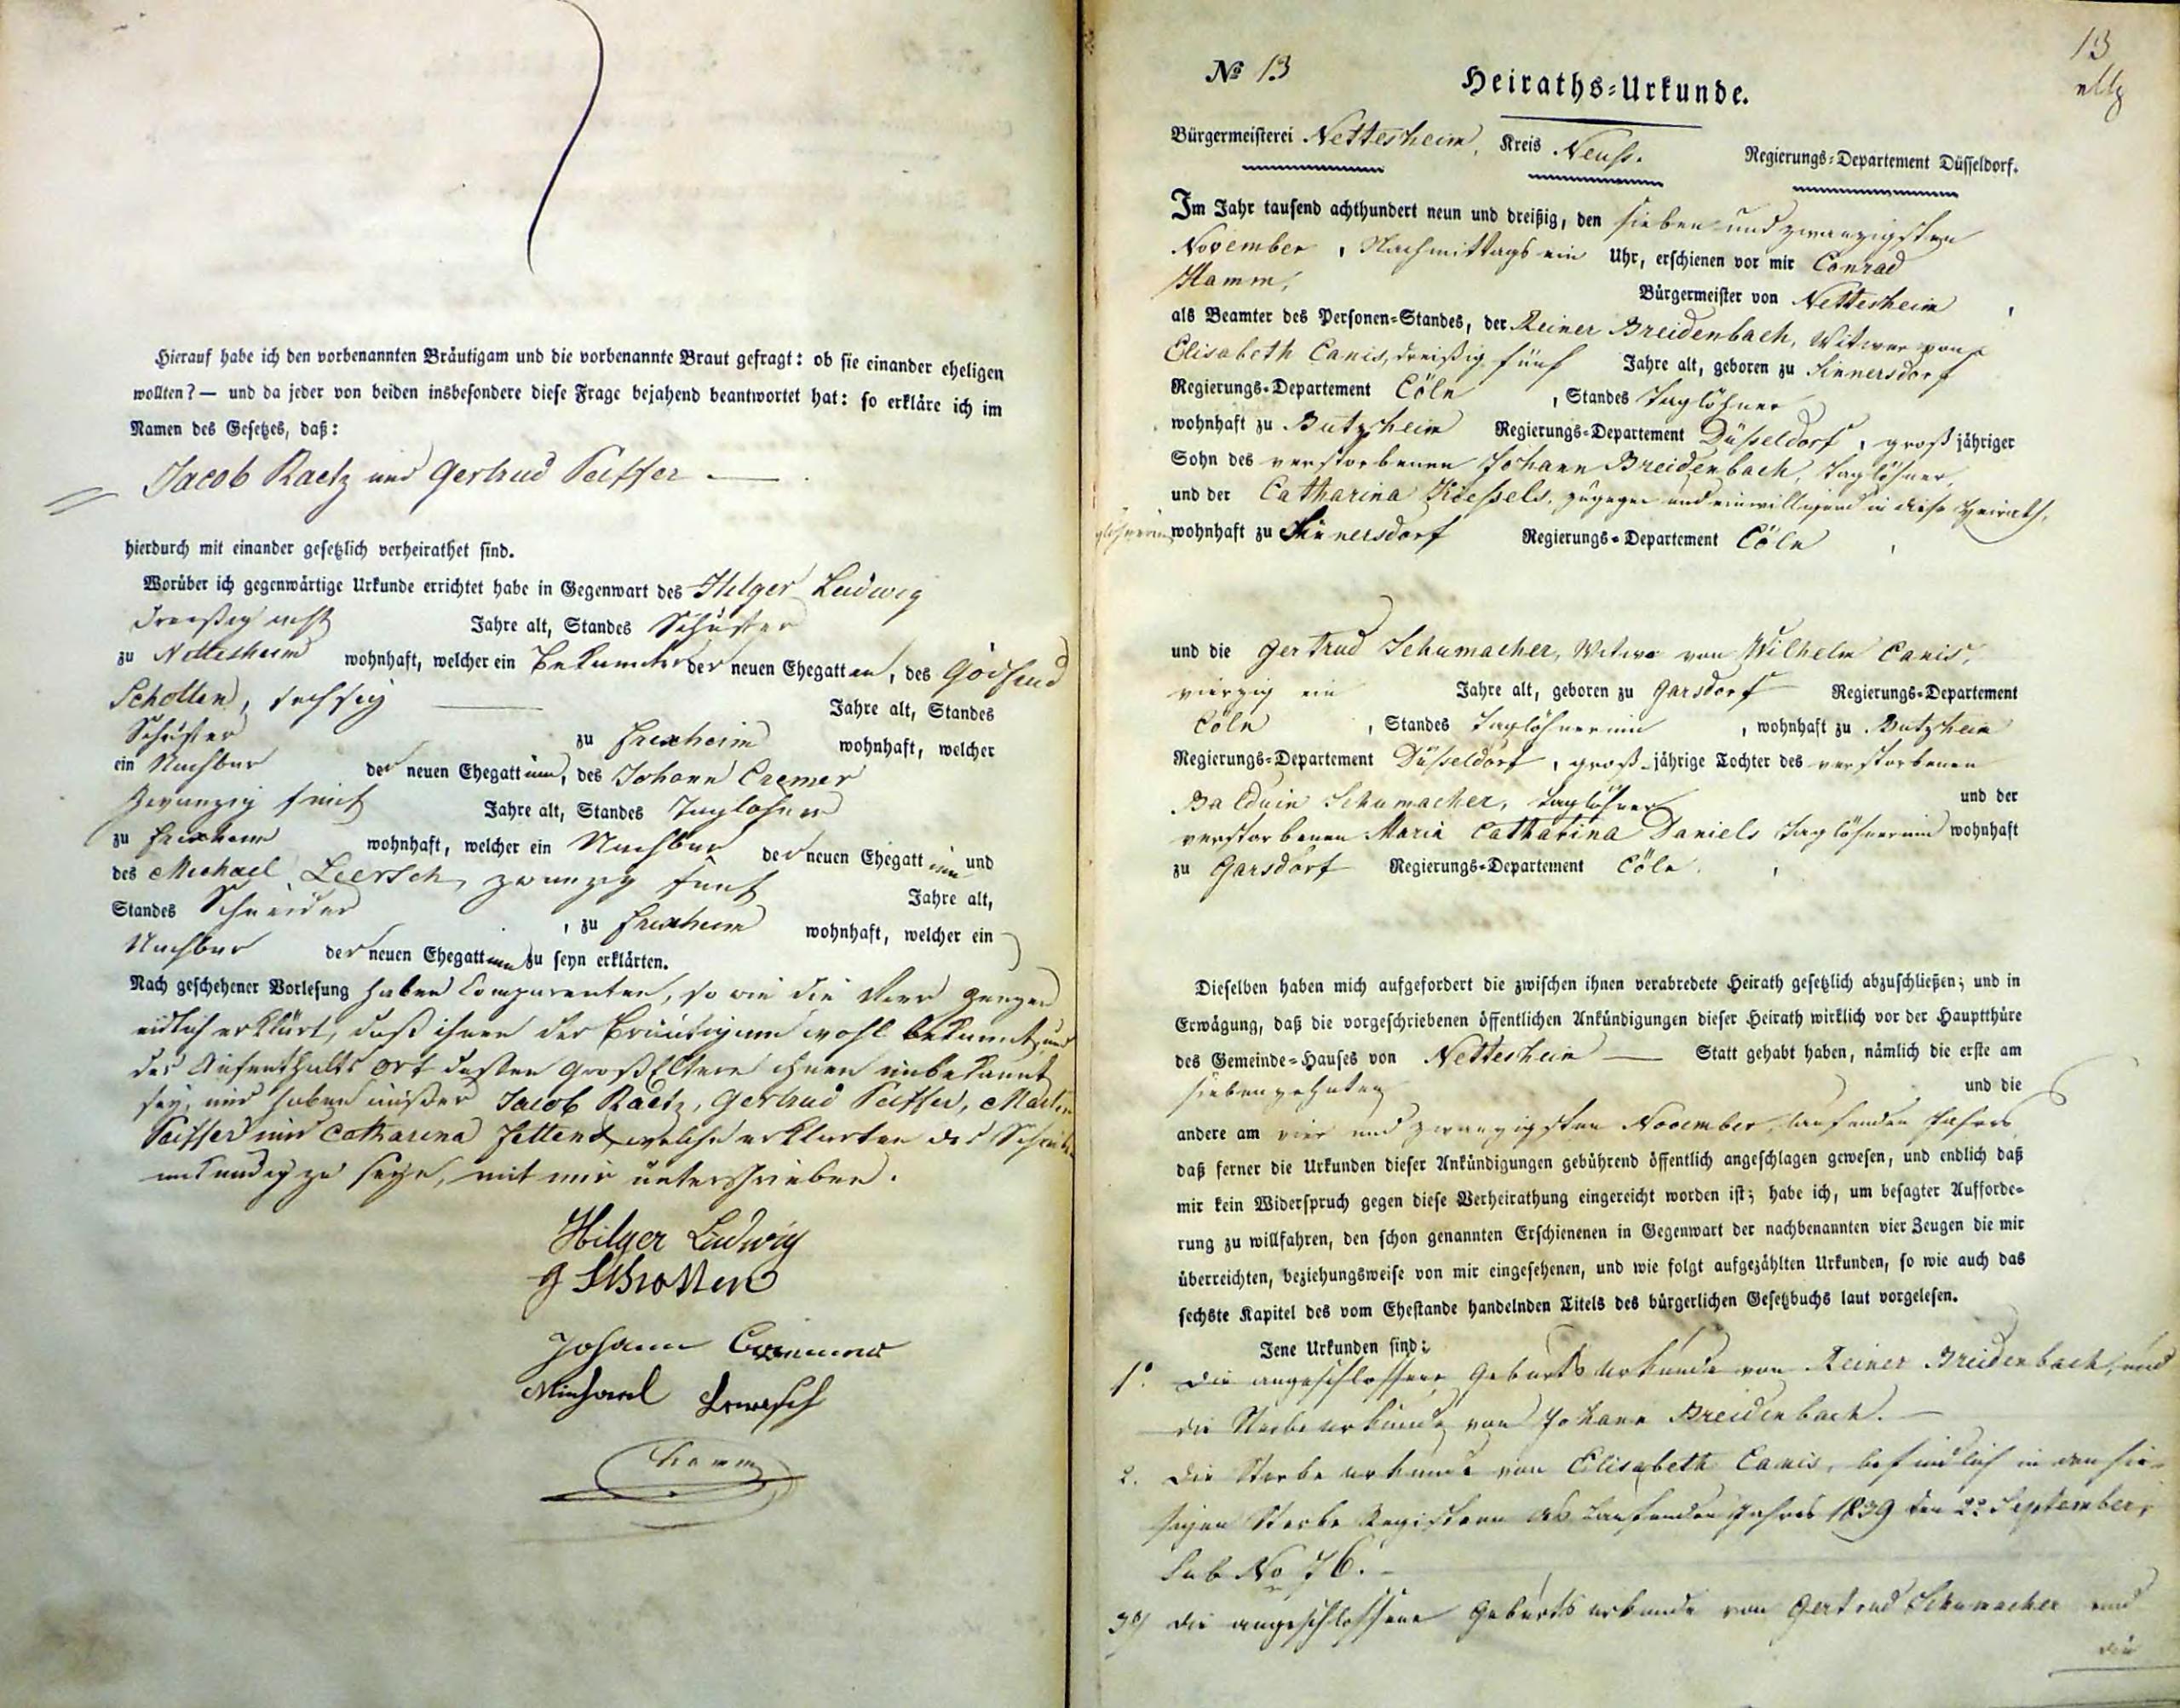 Hierauf habe ich den vorbenannten Bräutigam und die vorbenannte Braut gefragt: ob sie einander eheligen
wollten? — und da jeder von beiden insbesondere diese Frage bejahend beantwortet hat: so erkläre ich im
Namen des Gesetzes, daß:
Jacob Raetz und Gertrud Peiffer —
hierdurch mit einander gesetzlich verheirathet sind.
Worüber ich gegenwärtige Urkunde errichtet habe in Gegenwart des Hilger Ludwig
dreißig acht Jahre alt, Standes Schuster
zu Nettesheim wohnhaft, welcher ein Bekannter der neuen Ehegatten, des
Schotten, sechsig Jahre alt, Standes
Schuster zu Frixheim wohnhaft, welcher
ein Nachbar der neuen Ehegattinn, des Johann Cremer
zwanzig fünf Jahre alt, Standes Taglöhner
zu Frixheim wohnhaft, welcher ein Nachbar der neuen Ehegattinn und
des Michael Leersch, zwanzig fünf Jahre alt,
Standes Schneider, zu Frixheim wohnhaft, welcher ein
Nachbar der neuen Ehegattinn zu seyn erklärten.
Nach geschehener Vorlesung haben Comparenten, so wie die vier Zeugen
eidlich erklärt, daß ihnen der Bräutigam wohl bekannt, und
der Aufenthalts Ort dessen Großeltern ihnen unbekannt
sey, und haben außer Jacob Raetz, Gertrud Peiffer,
Peiffer und Catharina welche erklärten des
unkundig zu seyn, mit mir unterschrieben.
Hilger Ludwig
g Schotten
Johann Cremer
Michael Leersch
Hamm
13
№ 13 Heiraths-Urkunde.
Bürgermeisterei Nettesheim, Kreis Neuß. Regierungs-Departement Düsseldorf.
Im Jahr tausend achthundert neun und dreißig, den sieben und zwanzigsten
November, Nachmittags ein Uhr, erschienen vor mir Conrad
Hamm, Bürgermeister von Nettesheim,
als Beamter des Personen-Standes, der Reiner Breidenbach, Witwer von
Elisabeth Canis, dreißig fünf Jahre alt, geboren zu Sinnersdorf
Regierungs-Departement Cöln, Standes Taglöhner
wohnhaft zu Butzheim Regierungs-Departement Düsseldorf, großjähriger
Sohn des verstorbenen Johann Breidenbach, Taglöhner,
und der Catharina zugegen und einwilligend in diese Heirath,
wohnhaft zu Sinnersdorf Regierungs-Departement Cöln,
und die Gertrud Schumacher, Witwe von Wilhelm Canis,
vierzig ein Jahre alt, geboren zu Garsdorf Regierungs-Departement
Cöln, Standes Taglöhnerinn, wohnhaft zu Butzheim
Regierungs-Departement Düsseldorf, großjährige Tochter des verstorbenen
Balduin Schumacher, Taglöhner und der
verstorbenen Maria Catharina Daniels Taglöhnerinn wohnhaft
zu Garsdorf Regierungs-Departement Cöln,
Dieselben haben mich aufgefordert die zwischen ihnen verabredete Heirath gesetzlich abzuschließen; und in
Erwägung, daß die vorgeschriebenen öffentlichen Ankündigungen dieser Heirath wirklich vor der Hauptthüre
des Gemeinde-Hauses von Nettesheim — Statt gehabt haben, nämlich die erste am
siebenzehnten und die
andere am vier und zwanzigsten November, laufenden Jahres
daß ferner die Urkunden dieser Ankündigungen gebührend öffentlich angeschlagen gewesen, und endlich daß
mir kein Widerspruch gegen diese Verheirathung eingereicht worden ist; habe ich, um besagter Aufforde-
rung zu willfahren, den schon genannten Erschienenen in Gegenwart der nachbenannten vier Zeugen die mir
überreichten, beziehungsweise von mir eingesehenen, und wie folgt aufgezählten Urkunden, so wie auch das
sechste Kapitel des vom Ehestande handelnden Titels des bürgerlichen Gesetzbuchs laut vorgelesen.
Jene Urkunden sind:
1° die angeschlossene Geburts Urkunde von Reiner Breidenbach, und
die Sterbe urkunde von Johann Breidenbach. —
2. die Sterbe urkunde von Elisabeth Canis, befindlich in den hie-
sigen Sterbe Registern des laufenden Jahres 1839 den September,
sub No 76. —
3° die angeschlossene Geburts urkunde von Gertrud Schumacher und
die